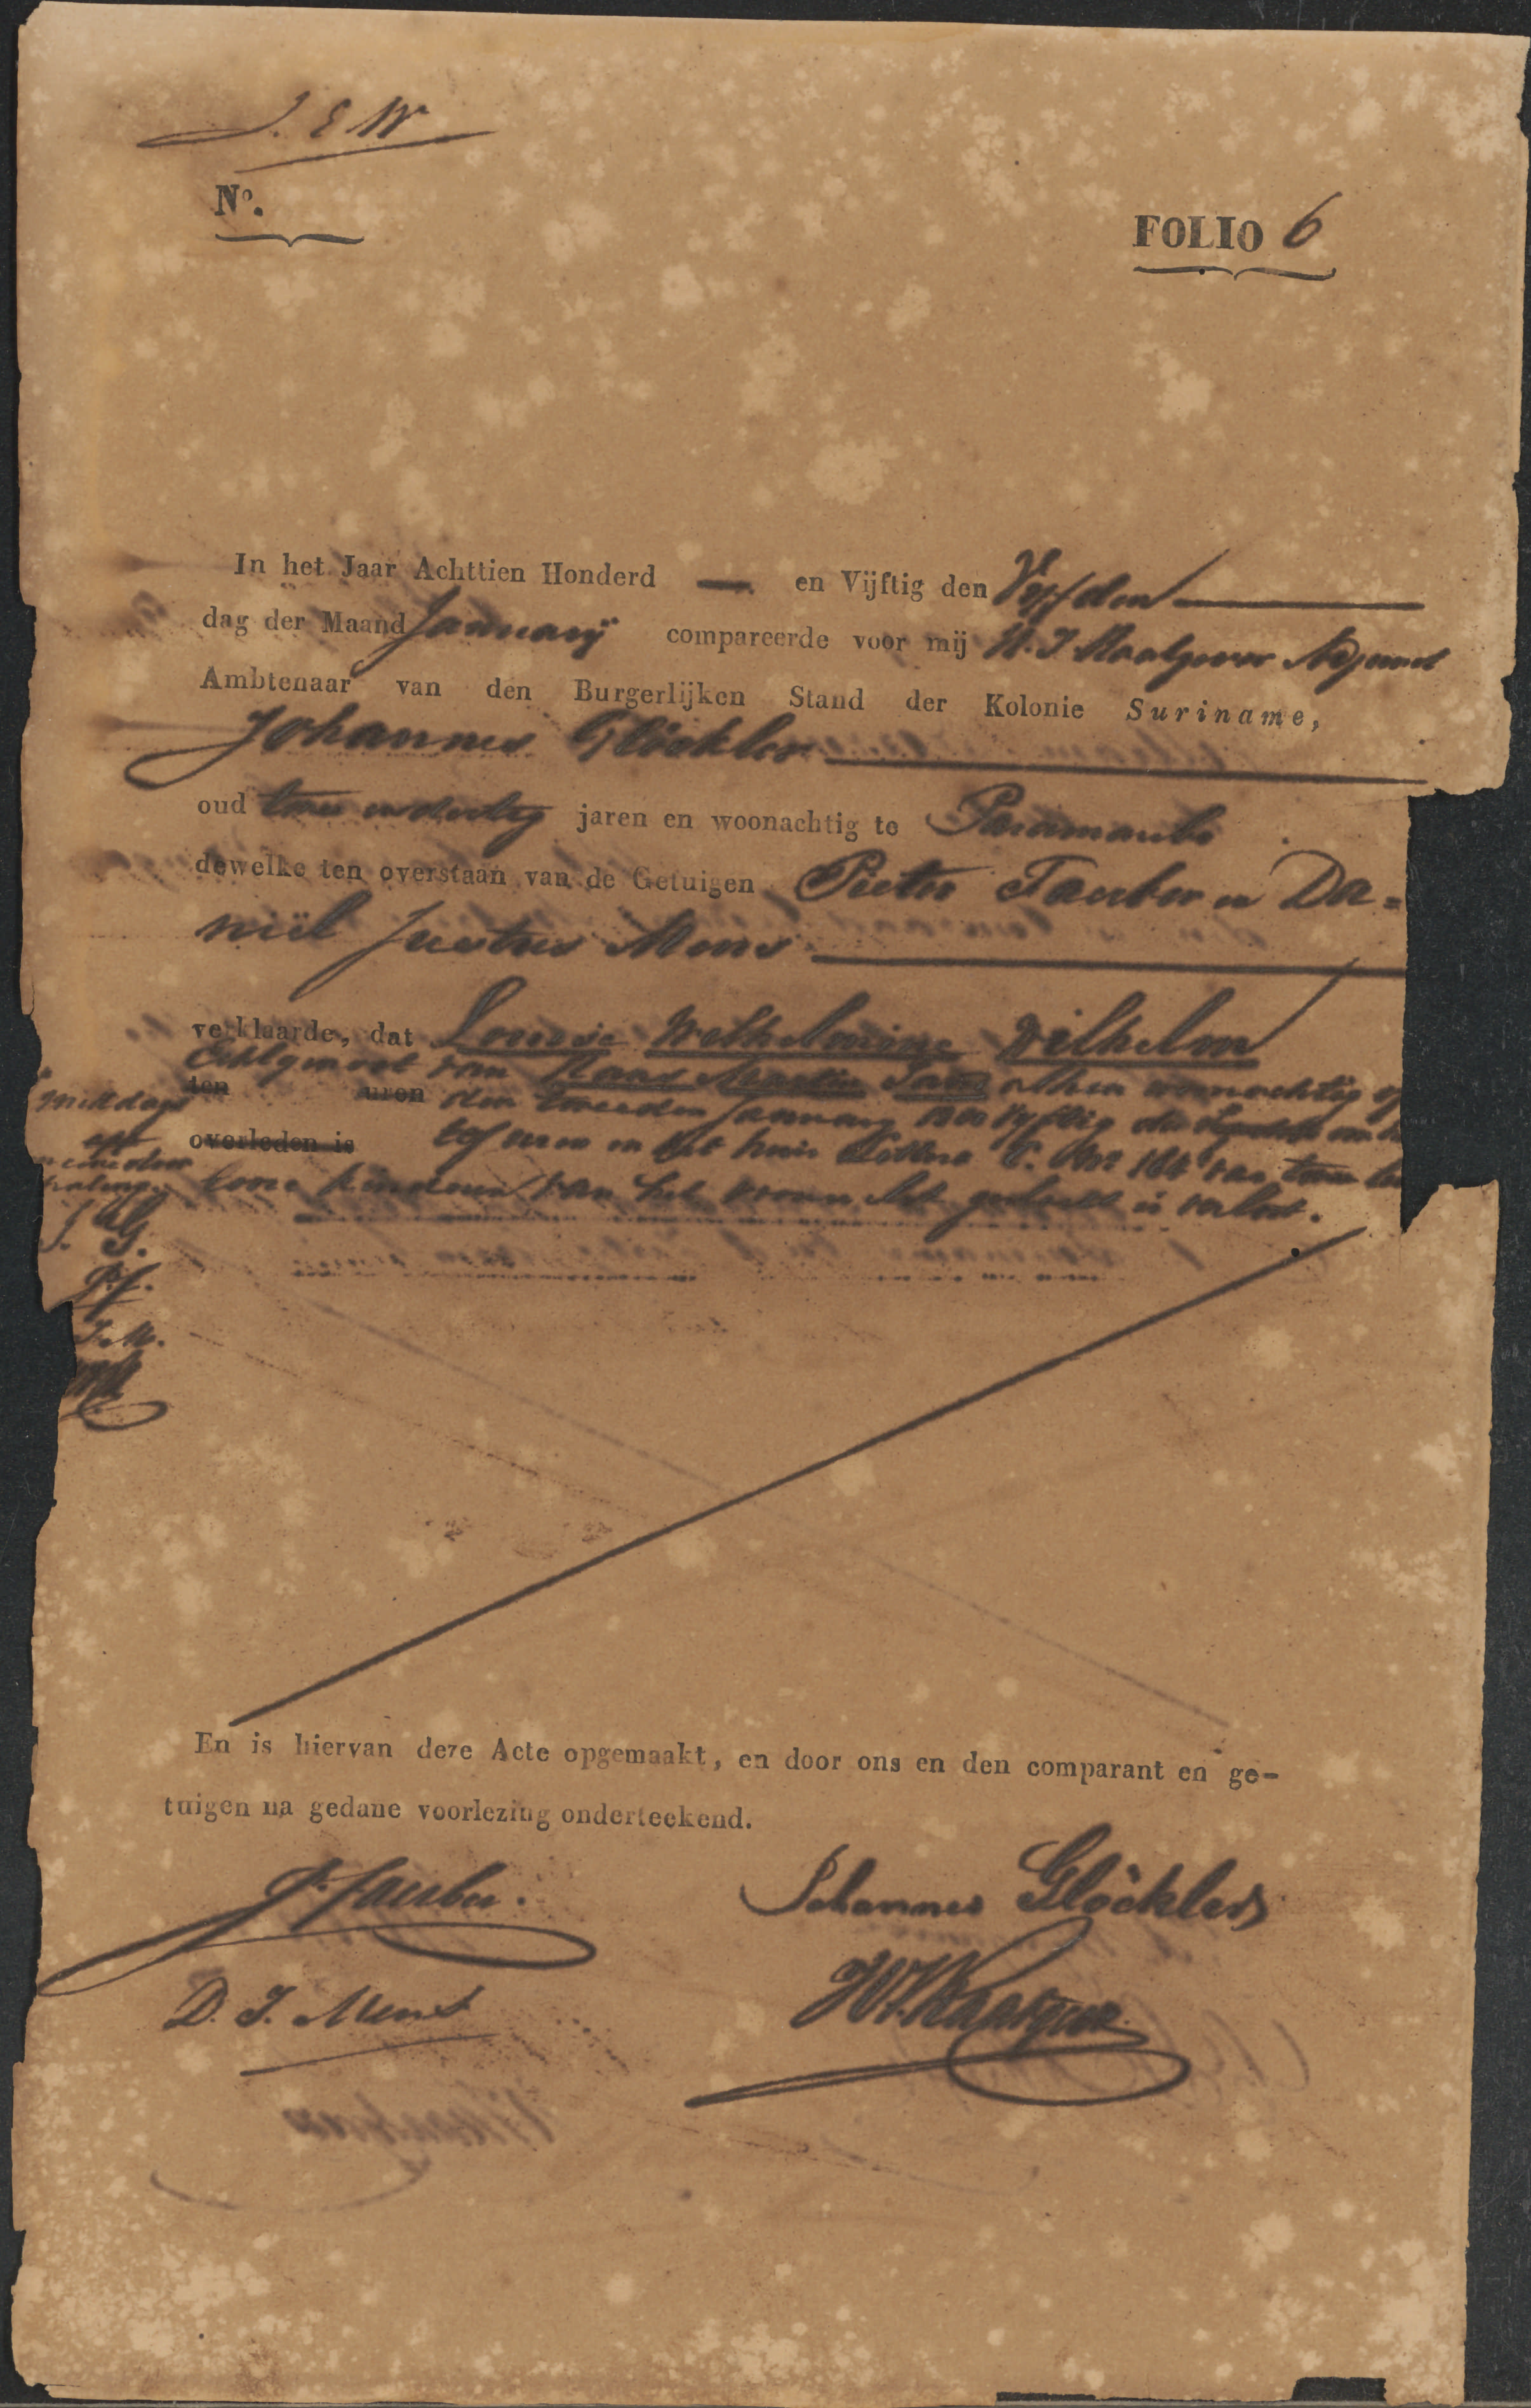 J. E W
No.
FOLIO 6
In het Jaar Achttien Honderd — en Vijftig den Vijfden
dag der Maand Januarij compareerde voor mij H. J.
Ambtenaar van den Burgerlijken Stand der Kolonie Suriname,
Johannes Glöckler
oud twee en dertig jaren en woonachtig te Paramaribo
dewelke ten overstaan van de Getuigen Pieter Tauber en Da=
niël Justus Mens
verklaarde, dat Louise Wilhelmine Wilhelm
Echtgenoot van Martin alhier woonachtig op
ten uren den tweeden Januarij 1800 vyftig des
overleden is elf uren in het huis Letter C. No. 166 van twee le
kinderen van het vrouwelijk geslacht is verlost.
middags
J. G.
P. T.
J. M.
En is hiervan deze Acte opgemaakt, en door ons en den comparant en ge-
tuigen na gedane voorlezing onderteekend.
P. Tauber.
Johannes Glöckler
D. J. Mens